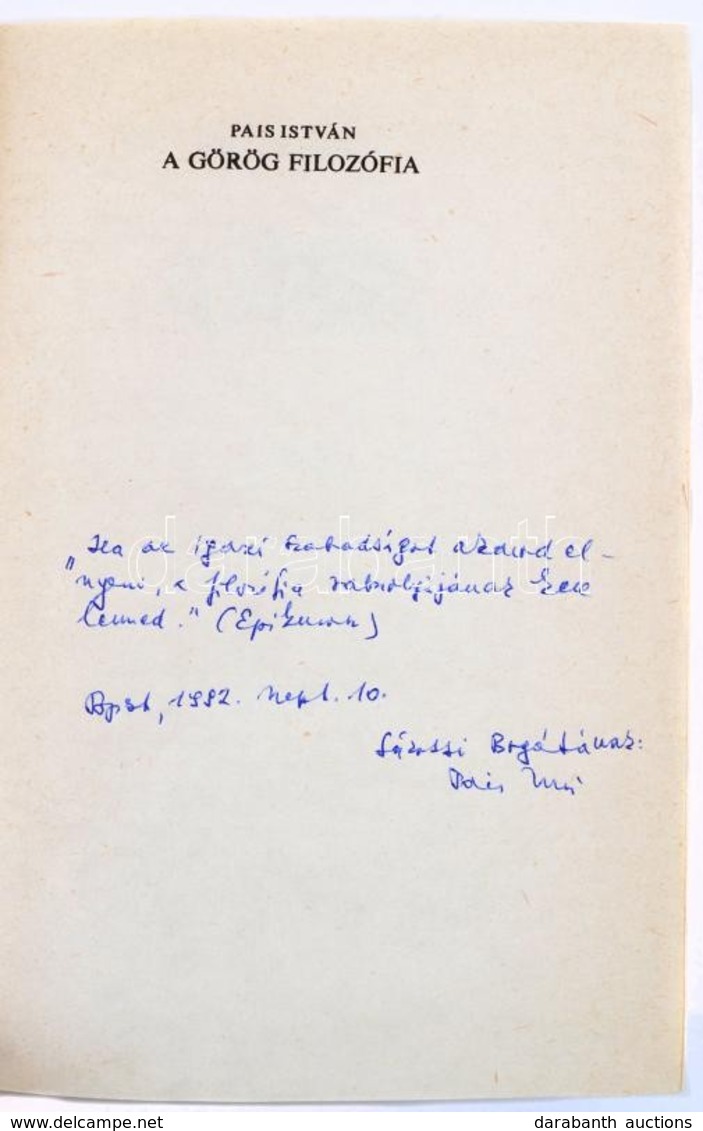 PAIS ISTVÁN
A GÖRÖG FILOZÓFIA
„Ha az igazi szabadságot akarod el-
nyerni, a filozófia rabszolgájának kell
lenned." (Epikuros)
Bpest, 1992. szept. 10.
Sárossi Bogátának:
Pais István
darabanth
www.delcampe.net
darabanth auctions